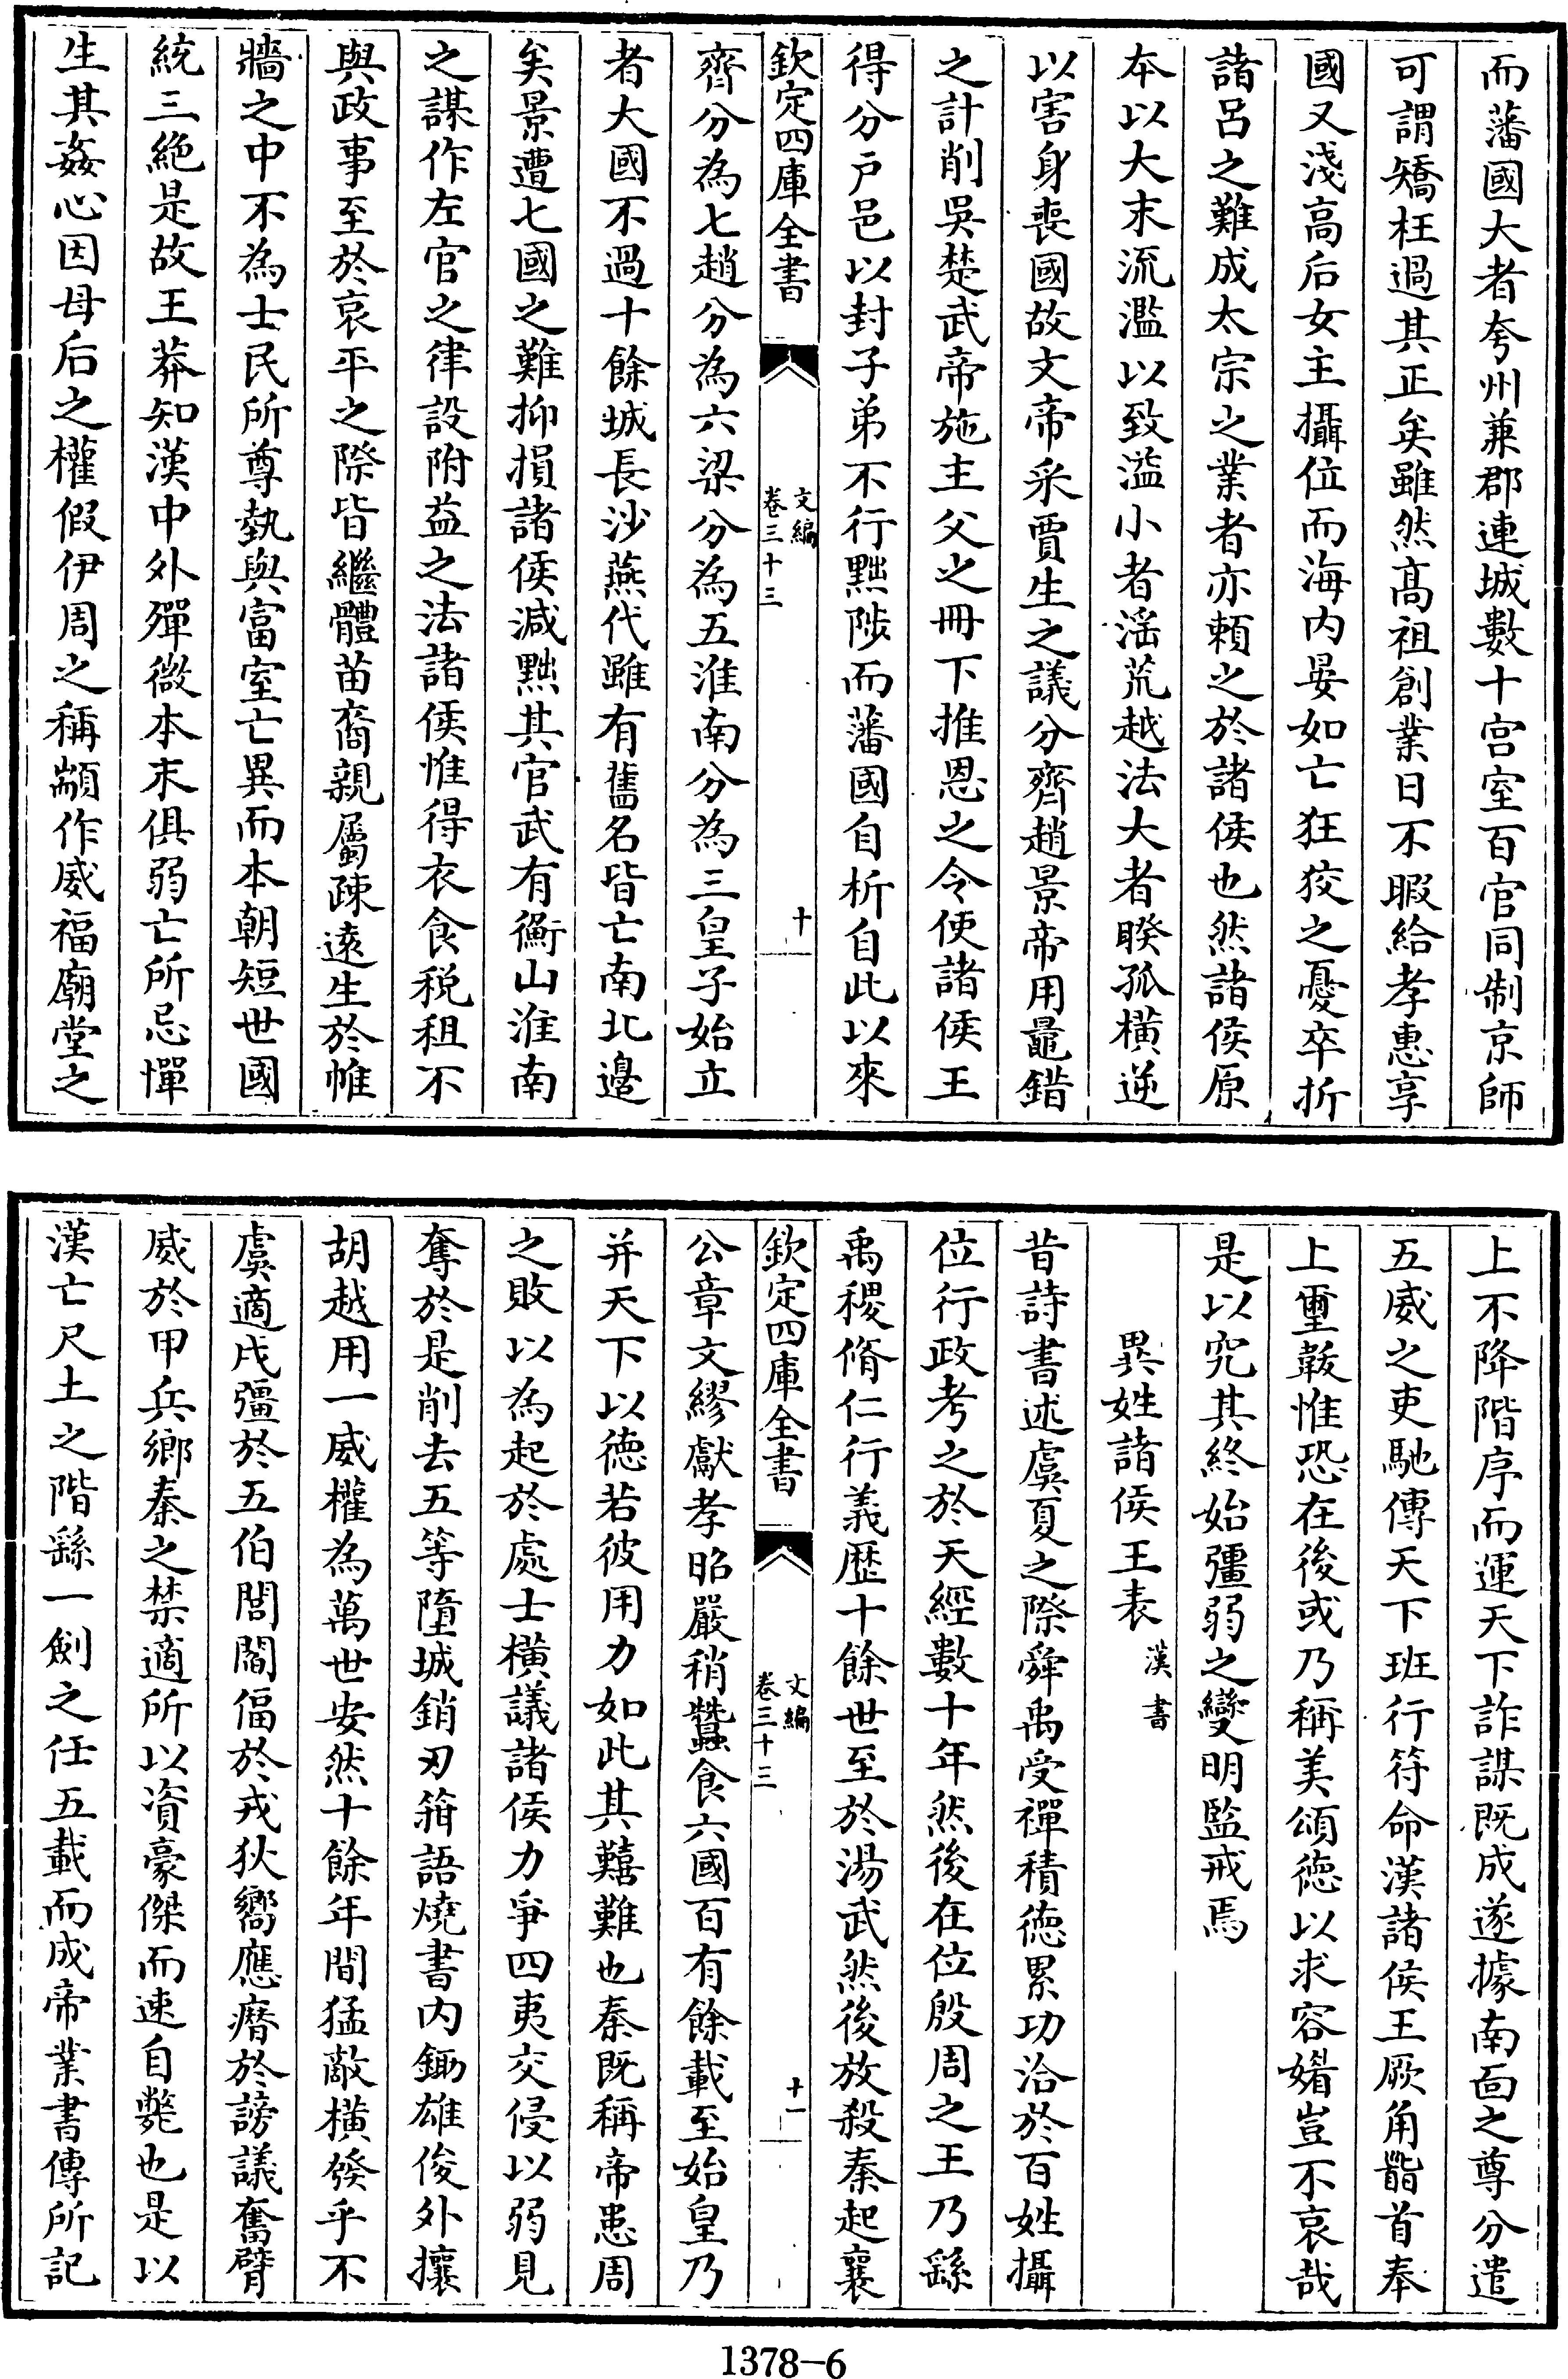 而藩國大者夸州兼郡連城數十宫室百官同制京師
可謂矯枉過其正矣雖然髙祖創業日不暇給孝惠享
國又淺高后女主攝位而海内晏如亡狂狡之憂卒折
諸呂之難成太宗之業者亦頼之於諸侯也然諸侯原
本以大末流濫以致溢小者滛荒越法大者睽孤横逆
以害身喪國故文帝采賈生之議分齊趙景帝用鼂錯
之計削吳楚武帝施主父之冊下推恩之令使諸侯王
得分戸邑以封子弟不行黜陟而藩國自析自此以來
欽定四庫全書
文編
卷三十三
十
齊分為七趙分為六梁分為五淮南分為三皇子始立
者大國不過十餘城長沙燕代雖有舊名皆亡南北邉
矣景遭七國之難抑損諸侯減黜其官武有衡山淮南
之謀作左官之律設附益之法諸侯惟得衣食税租不
與政事至於哀平之際皆繼體苗裔親屬疎逺生於帷
牆之中不為士民所尊埶與富室亡異而本朝短世國
統三絶是故王莽知漢中外殫微本末俱弱亡所忌憚
生其姦心因母后之權假伊周之稱顓作威福廟堂之
上不降階序而運天下詐謀既成遂據南面之尊分遣
五威之吏馳傳天下班行符命漢諸侯王厥角䭫首奉
上璽韍惟恐在後或乃稱美頌徳以求容媚豈不哀哉
是以究其終始彊弱之變明監戒焉
異姓諸侯王表漢書
昔詩書述虞夏之際舜禹受禪積徳累功洽於百姓攝
位行政考之於天經數十年然後在位殷周之王乃繇
禹稷脩仁行義歴十餘世至於湯武然後放殺秦起襄
欽定四庫全書
文編
卷三十三
十一
公章文繆獻孝昭嚴稍蠶食六國百有餘載至始皇乃
并天下以徳若彼用力如此其囏難也秦既稱帝患周
之敗以為起於處士横議諸侯力爭四夷交侵以弱見
奪於是削去五等隳城銷刃箝語燒書内鋤雄俊外攘
胡越用一威權為萬世安然十餘年間猛敵横發乎不
虞適戍彊於五伯閭閻偪於戎狄嚮應瘠於謗議奮臂
威於甲兵鄉秦之禁適所以資豪傑而速自斃也是以
漢亡尺土之階繇一劍之任五載而成帝業書傳所記
1378-6